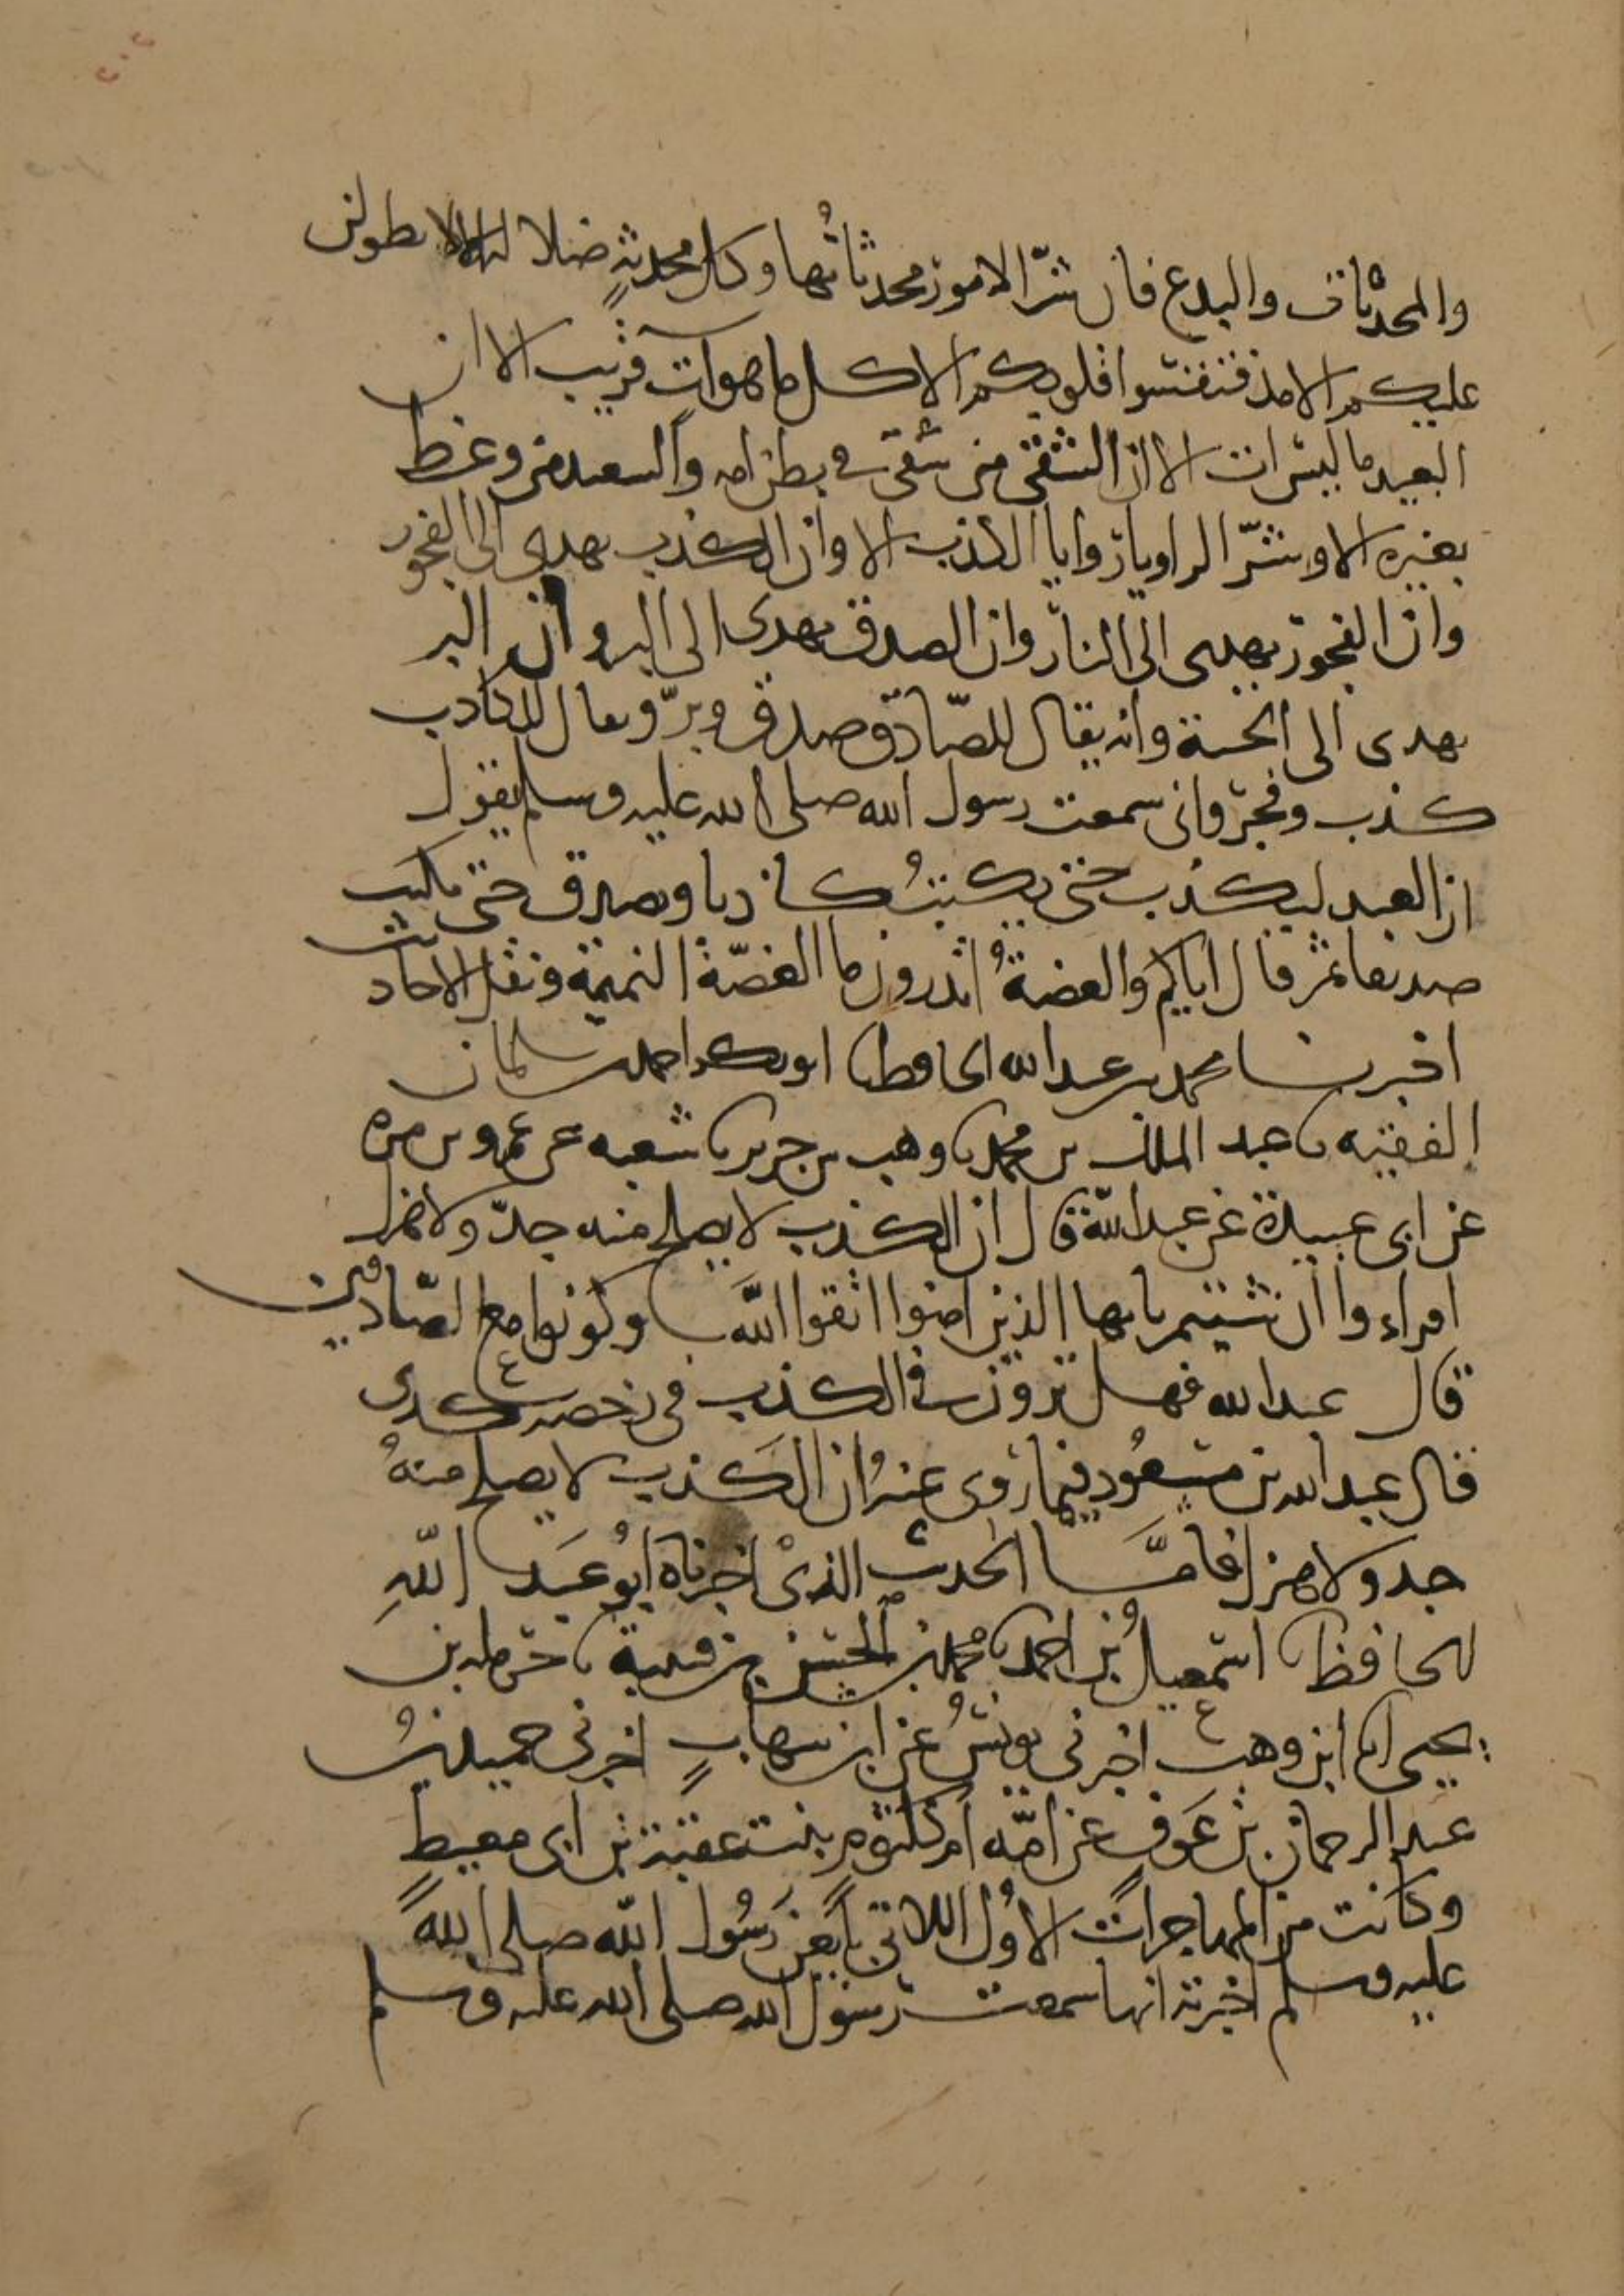 والمحدثات والبدع فان شرّ الامور محدثاتُها وكل محدثةٍ ضلالة الا لا يطولن
عليكم الامد فتفتنوا قلوبكم الا كل ما هو آتٍ قريب الا ان
البعيد ما ليس ات الا ان الشقي من شقي في بطن امه والسعيد من وعظ
بغيره الا وشرّ الروايا روايا الكذب الا وان الكذب يهدي الى الفجور
وان الفجور يهدي الى النار وان الصدق يهدى الى البر وان البر
يهدى الى الجنة وانه يقال للصّادق صدق وبرّ ويقال للكاذب
كذب وفجر واني سمعت رسول الله صلى الله عليه وسلم يقول
ان العبد ليكذب حتى يكتبُ كاذبا ويصدق حتى يكتب
صديقا ثم قال اياكم والعضةُ اتدرون ما العضّة النميمة ونقل الاحاديث
اخبرنا محمد بن عبد الله الحافظ ابو بكر احمد بن سلمان
الفقيه عبد الملك بن محمد وهب بن جرير شعبه عن عمرو بن مره
عن ابي عبيدة عن عبد الله قال ان الكذب لا يصلح منه جدّ ولا هزل
اقراءوا ان شيتم يايها الذين امنوا اتقوا اللَّه وكونوا مع الصّادقين
قال عبد الله فهل ترون في الكذب في رخصه
قال عبد الله بن مسعُود فيما رُوى عنه ان الكَذب لا يصلح منهُ
جد ولا هزل فامَّا الحديث الذيْ اخبرناه ابُو عَبد اللهِ
الحافظ اسمعيل بن احمد محمد بن الحسن بن قتيبة حرمله بن
يحيى ابن وهب اخبرني يونسُ عن ابن شهابٍ اخبرني حميد بنُ
عبد الرحمان بن عَوفٍ عن امّه ام كلثوم بنت عقبة بن ابي معيطٍ
وكانت من المهاجرات الاُول اللاتي بايعن رَسُول الله صلى الله
عليه وسلم اخبرته انها سمعت رسول الله صلى الله عليه وسلم